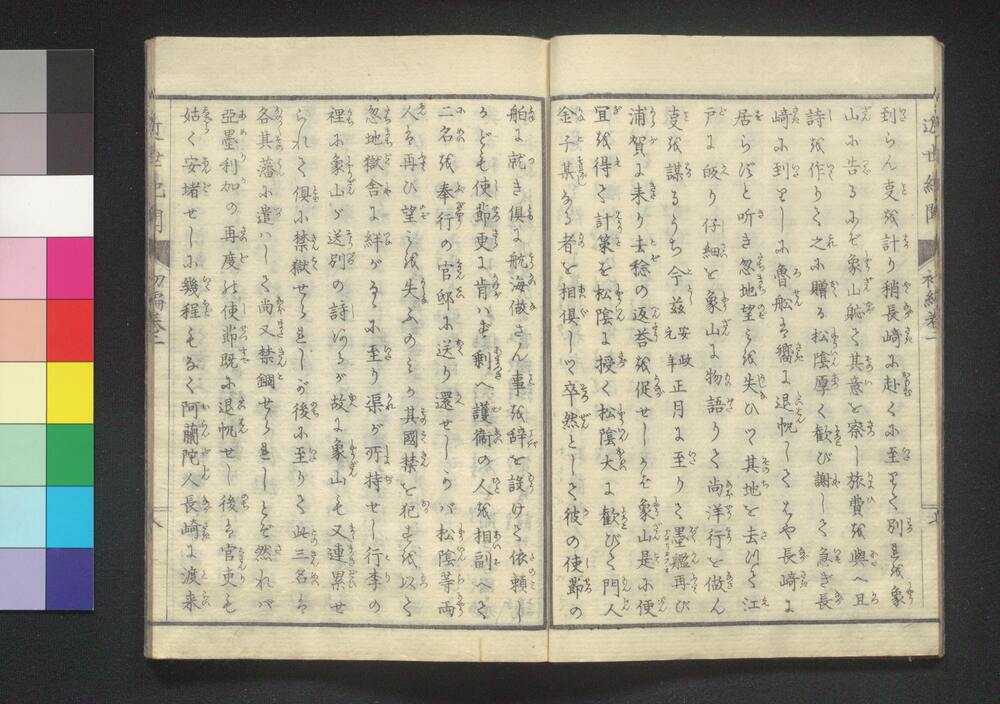 到らん支を計り稍長﨑に赴くに至りて別れを象
山に告るにぞ象山能く其意を察し旅費を與へ且
詩を作りて之に贈る松陰厚く歓び謝して急ぎ長
﨑に到りしに魯舩は嚮に退帆してはや長﨑に
居らずと聴き忽地望みを失ひつ其地を去りて江
戸に皈り仔細を象山に物語りて尚洋行を做ん
支を謀るうち今茲安政元年正月に至りて墨艦再び
浦賀に来り去稔の返荅を促せしかば象山是に便
冝を得て計策を松陰に授く松陰大に歓びて門人
金子某なる者を相倶しつ卒然として彼の使節の
舶に就き倶に航海做さん事を辞を設けて依頼し
かども使節更に肯はず剰へ護衞の人を相副へて
二名を奉行の官邸に送り還せしかバ松陰等両
人は再び望みを失ふのみか其國禁を犯すを以て
忽地獄舎に絆がるに至り渠が所持せし行李の
裡に象山が送別の詩ありしが故に象山も又連累せ
られて倶に禁獄せられしが後に至りて此三名は
各其藩に遣ハして尚又禁錮せられしとぞ然れバ
亞墨利加の再度の使節既に退帆せし後は官吏も
姑く安堵せしに幾程もなく阿蘭陀人長﨑に渡来
近世紀聞
初編巻二